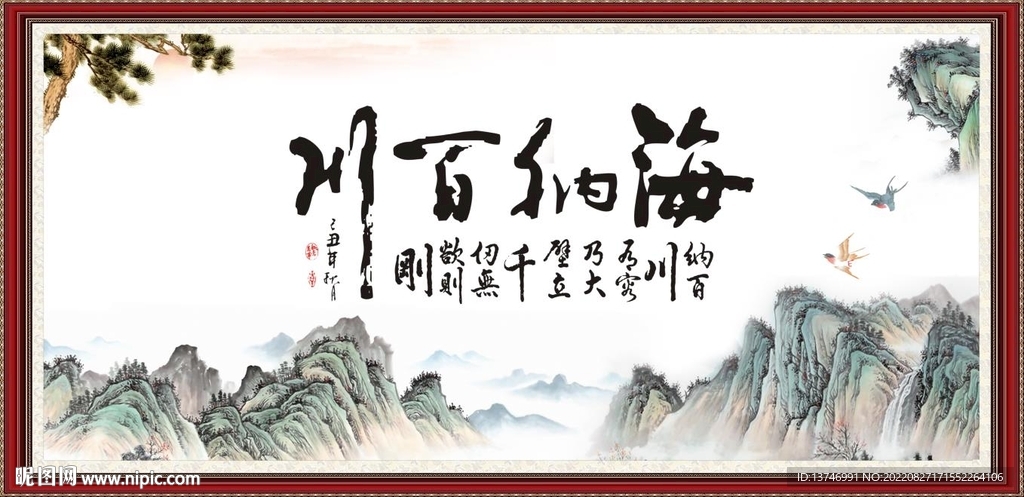 海納百川
納百
川
有容
乃大
壁立
千
仞無
欲則
剛
己丑年秋月
昵图网 www.nipic.com
ID:13746991 NO:20220827171552264106